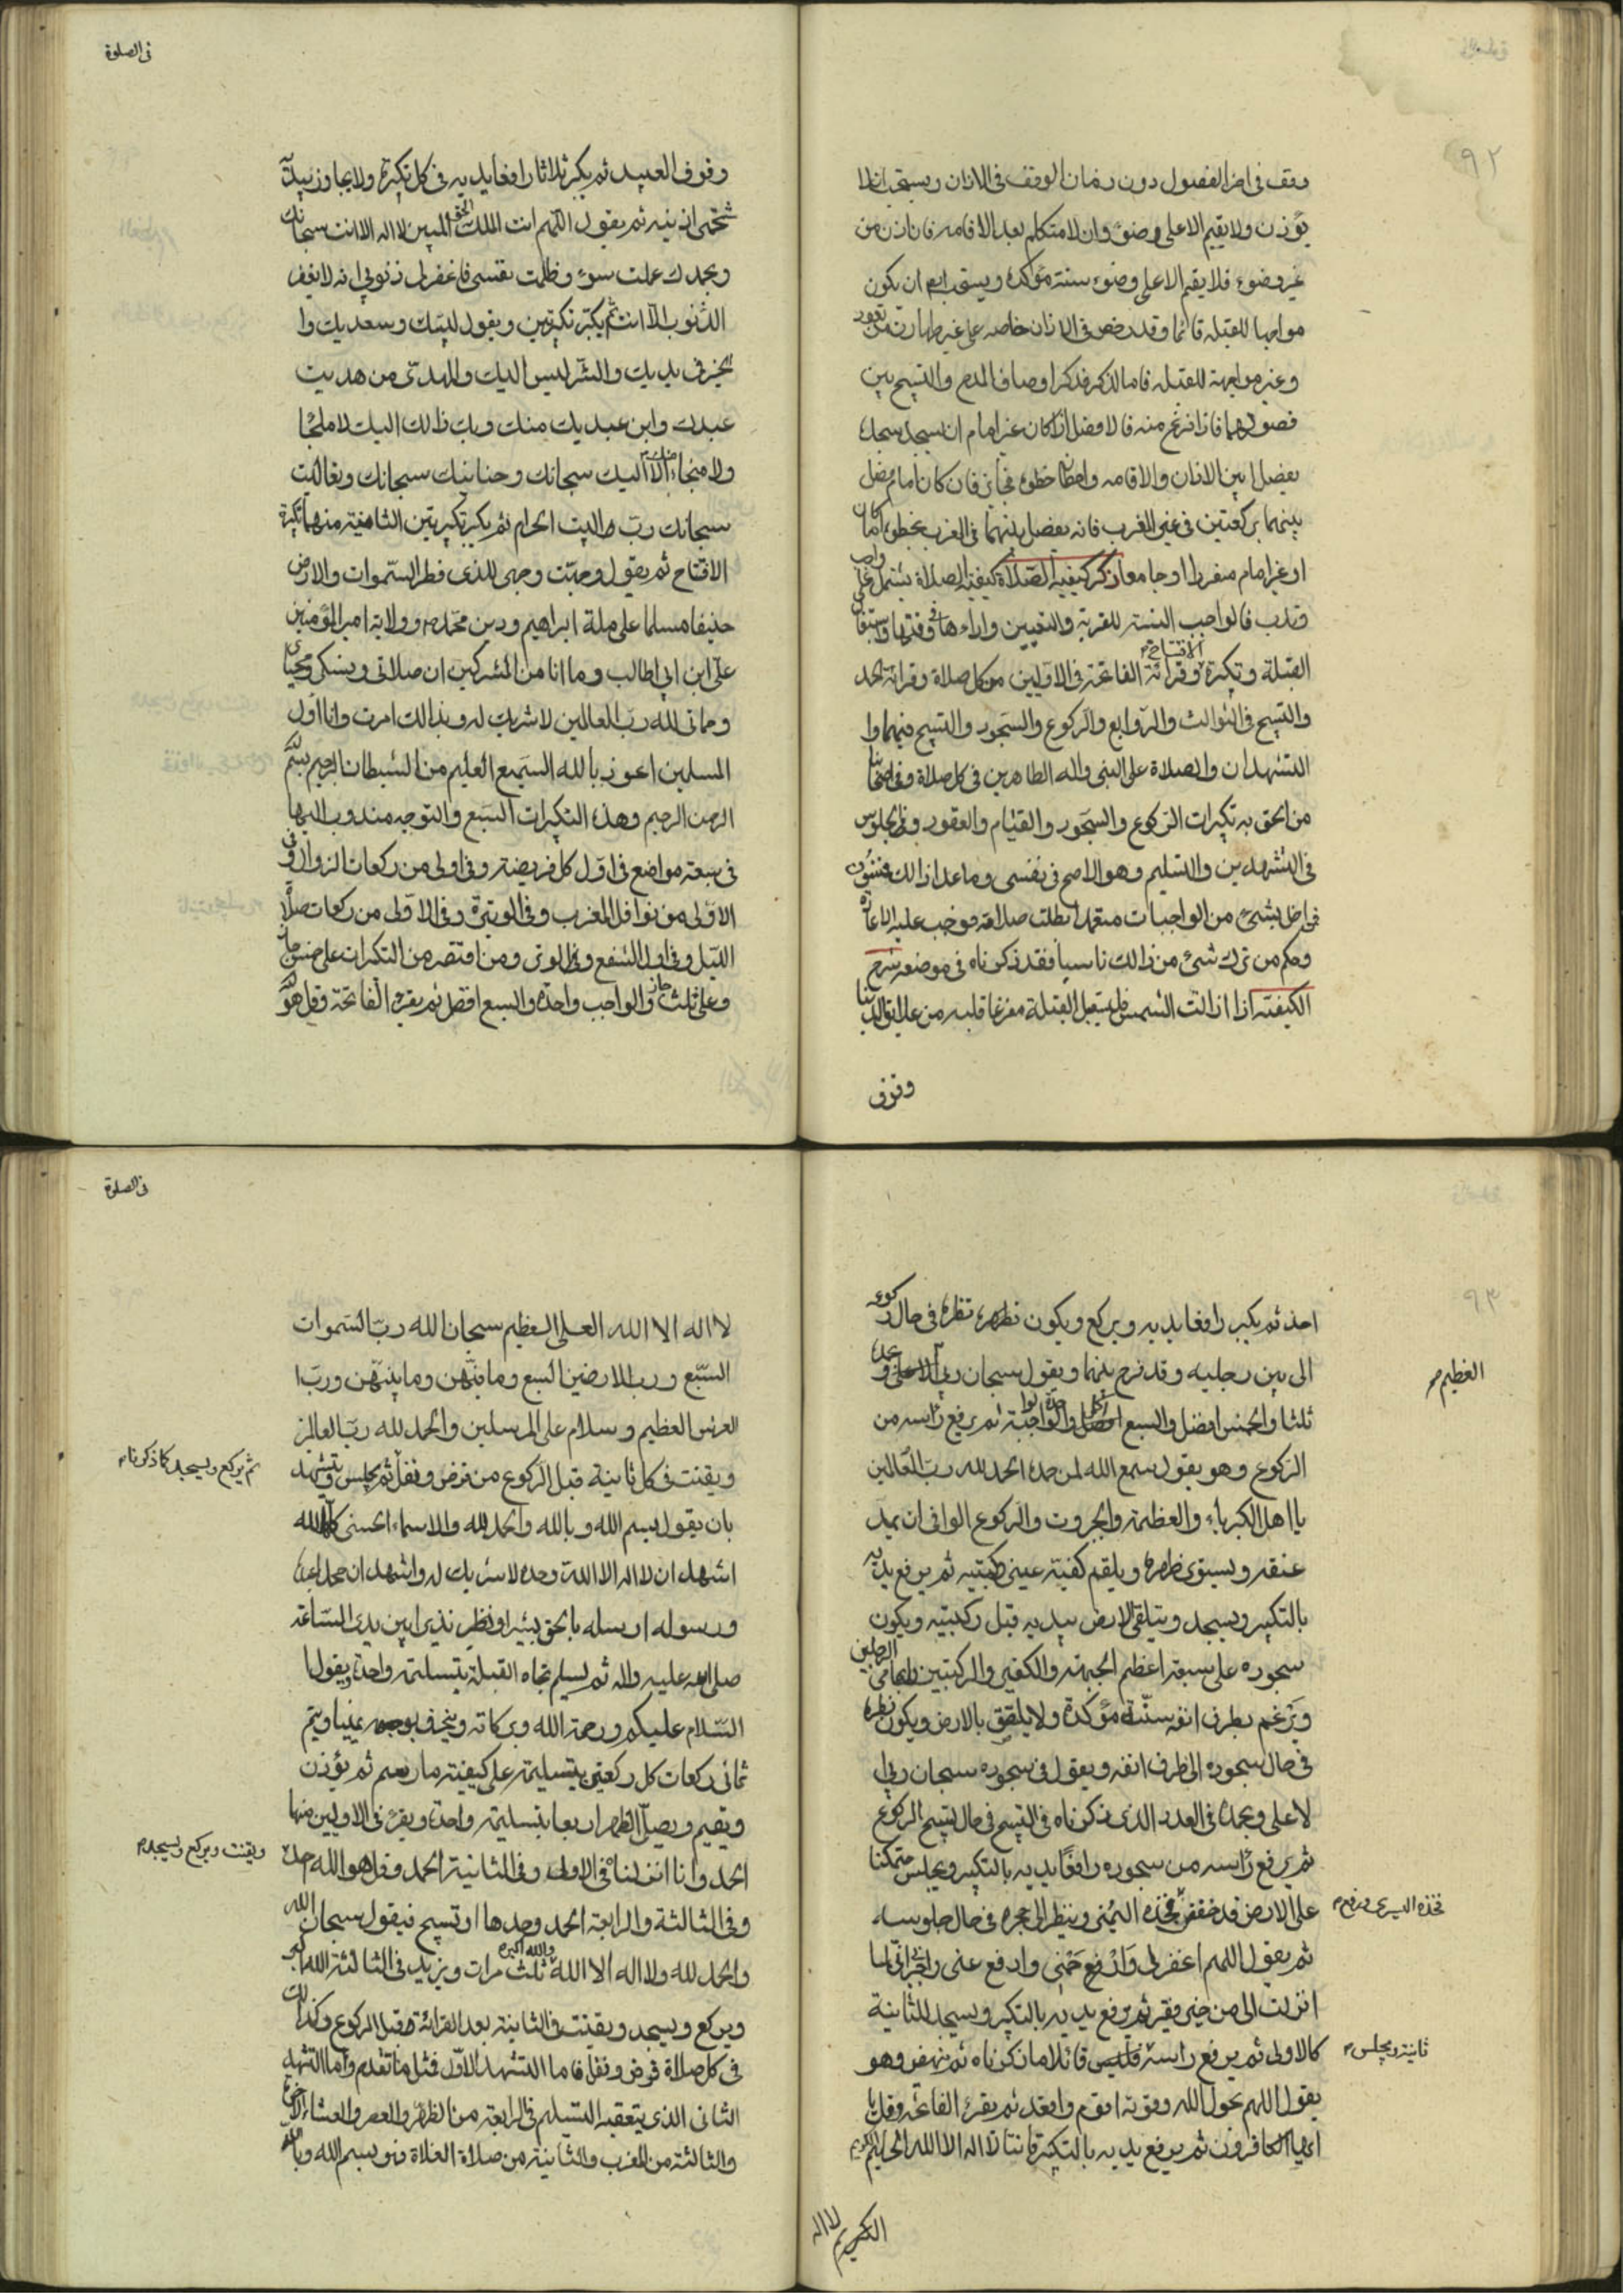 ٩٢
وقف في اخر الفصول دون زمان الوقف في الاذان ويستحب ان لا
يؤذن ولا يقيم الا على وضوء وان لا متكلم بعد الاقامه فان اذن من
غير وضوء فلا يقيم الا على وضوء سنته مؤكدة ويستحب ان يكون
مواجها للقبله قائما وقد رخص في الاذان خاصه على غير طهارة من قعود
وغير مواجهة للقبله فاما الذكر فذكر اوصاف المدح والتسبيح بين
فصولهما فاذا فرغ منه فالافضل اذا كان غير امام ان يسجد سجدة
يفصل بين الاذان والاقامه واعطا خطوة فجائز فان كان امام فصل
بينهما بركعتين في غير المغرب فانه يفصل بينهما في المغرب بخطوة اما كان
او غير امام منفردا او جامعا ذكر كيفية الصلاة كيفية الصلاة يشتمل على واجب
وندب فالواجب النية للقربة والتعيين واداءها في وقتها واستقبال
القبلة وتكبيرة الافتتاح وقرائة الفاتحة في الاوليين من كل صلاة وقرائة الحمد
والتسبيح في الثوالث والروابع والركوع والسجود والتسبيح فيهما وا
التشهدان والصلاة على النبي واله الطاهرين في كل صلاة وفي اصحابنا
من الحق به تكبيرات الركوع والسجود والقيام والقعود وفي الجلوس
في التشهدين والتسليم وهو الاصح في نفسي وما عدا ذالك مسنون
فمن اخل بشئ من الواجبات متعمدا بطلت صلاته فوجب عليه الاعادة
وحكم من ترك شئ من ذالك ناسيا فقد ذكرناه في موضعه شرح
الكيفية اذا ازالت الشمس فليستقبل القبلة مفرغا قلبه من علائق الدنيا
وقوف
في الصلوة
وقوف العبيد ثم يكبر ثلاثا رافعا يديه في كل تكبيرة ولا يجاوز بيديه
شحمتي اذنيه ثم يقول اللهم انت الملك الحق المبين لا اله الا انت سبحانك
وبحمدك عملت سوء وظلمت نفسي فاغفر لي ذنوبي انه لا يغفر
الذنوب الا انت ثم يكبر تكبيرتين ويقول لبيك وسعديك وا
لخير في يديك والشر ليس اليك والمهدى من هديت
عبدك وابن عبديك منك وبك ولك واليك لا ملجا
ولا منجاء منك الا اليك سبحانك وحنانيك سبحانك وتعاليت
سبحانك رب البيت الحرام ثم يكبر تكبيرتين الثانية منهما تكبيرة
الافتتاح ثم يقول وجهت وجهي للذي فطر السموات والارض
حنيفا مسلما على ملة ابراهيم ودين محمد وولاية امير المؤمنين
علي ابن ابي طالب وما انا من المشركين ان صلاتي ونسكي ومحياي
ومماتي لله رب العالمين لا شريك له وبذالك امرت وانا اول
المسلمين اعوذ بالله السميع العليم من الشيطان الرجيم بسم الله
الرحمن الرحيم وهذه التكبيرات السبع والتوجه مندوب اليها
في سبعة مواضع في اول كل فريضة وفي اولى من ركعات الزوال وفي
الاولى من نوافل المغرب وفي الوتيرة وفي الاولى من ركعات صلاة
الليل وفي اول الشفع وفي الوتر ومن اقتصر من التكبيرات على خمس جاز
وعلى ثلث جاز والواجب واحدة والسبع افضل ثم يقرء الفاتحة وقل هو الله
٩٣
احد ثم يكبر رافعا يديه ويركع ويكون نظره في حال ركوعه
الى بين رجليه وقد فرج بينهما ويقول سبحان ربي العظيم وبحمده
ثلثا والخمس افضل والسبع اكمل والواحدة واجبة ثم يرفع راسه من
الركوع وهو يقول سمع الله لمن حمده الحمد لله رب العالمين
يا اهل الكبرياء والعظمة والجبروت والركوع الوافي ان يمد
عنقه ويستوي ظهره ويلقم كفيه عيني ركبتيه ثم يرفع يديه
بالتكبير ويسجد ويتلقى الارض بيديه قبل ركبتيه ويكون
سجوده على سبعة اعظم الجبهة والكفين والركبتين وابهامي الرجلين
ويرغم بطرف انفه سنة مؤكدة ولا يلتصق بالارض ويكون نظره
في حال سجوده الى طرف انفه ويقول في سجوده سبحان ربي ا
لاعلى وبحمده في العدد الذي ذكرناه في التسبيح في حال تسبيح الركوع
ثم يرفع رأسه من سجوده رافعا يديه بالتكبير ويجلس متمكنا
على الارض قد خفض فخذه اليسرى ورفع فخذه اليمنى وينظر الى حجره في حال جلوسه
ثم يقول اللهم اغفر لي وارحمني وادفع عني واجبرني اني لما
انزلت الي من خير فقير ثم يرفع يديه بالتكبير ويسجد للثانية
كالاولى ثم يرفع راسه ثانية ويجلس قائلا ما ذكرناه ثم ينهض وهو
يقول اللهم بحول الله وقوته اقوم واقعد ثم يقرء الفاتحة وقل يا
ايها الكافرون ثم يرفع يديه بالتكبيرة قانتا لا اله الا الله الحليم الكريم
الكريم لا اله
في الصلوة
لا اله الا الله العلي العظيم سبحان الله رب السموات
السبع ورب الارضين السبع وما فيهن وما بينهن ورب ا
العرش العظيم وسلام على المرسلين والحمد لله رب العالمين
ثم يركع ويسجد كما ذكرناه
ويقنت في كل ثانية قبل الركوع من فرض ونفل ثم يجلس ويتشهد
بان يقول بسم الله وبالله والحمد لله والاسماء الحسنى كلها لله
اشهد ان لا اله الا الله وحده لا شريك له واشهد ان محمدا عبده
ورسوله ارسله بالحق بشيرا ونذيرا بين يدي الساعة
صلى الله عليه واله ثم يسلم تجاه القبلة بتسليمة واحدة يقول ا
السلام عليكم ورحمة الله وبركاته وينحرف بوجهه يمينا ويتم
ثماني ركعات كل ركعتين بتسليمة على كيفية ما رسم ثم يؤذن
ويقيم ويصل الظهر اربعا بتسليمة واحدة ويقرء في الاوليين منها
الحمد وانا انزلناه في الاولى وفي الثانية الحمد وقل هو الله احد
ويقنت ويركع ويسجد
وفي الثالثة والرابعة الحمد وحدها او تسبيح فيقول سبحان الله
والحمد لله ولا اله الا الله ثلث مرات ويزيد في الثالثة الله اكبر
ويركع ويسجد ويقنت في الثانية بعد القرائة وقبل الركوع وكذالك
في كل صلاة فرض ونفل فاما التشهد الاول فمثل ما تقدم واما التشهد
الثاني الذي يتعقبه التسليم في الرابعة من الظهر والعصر والعشاء الاخرة
والثالثة من المغرب والثانية من صلاة الغداة فهو بسم الله وبالله